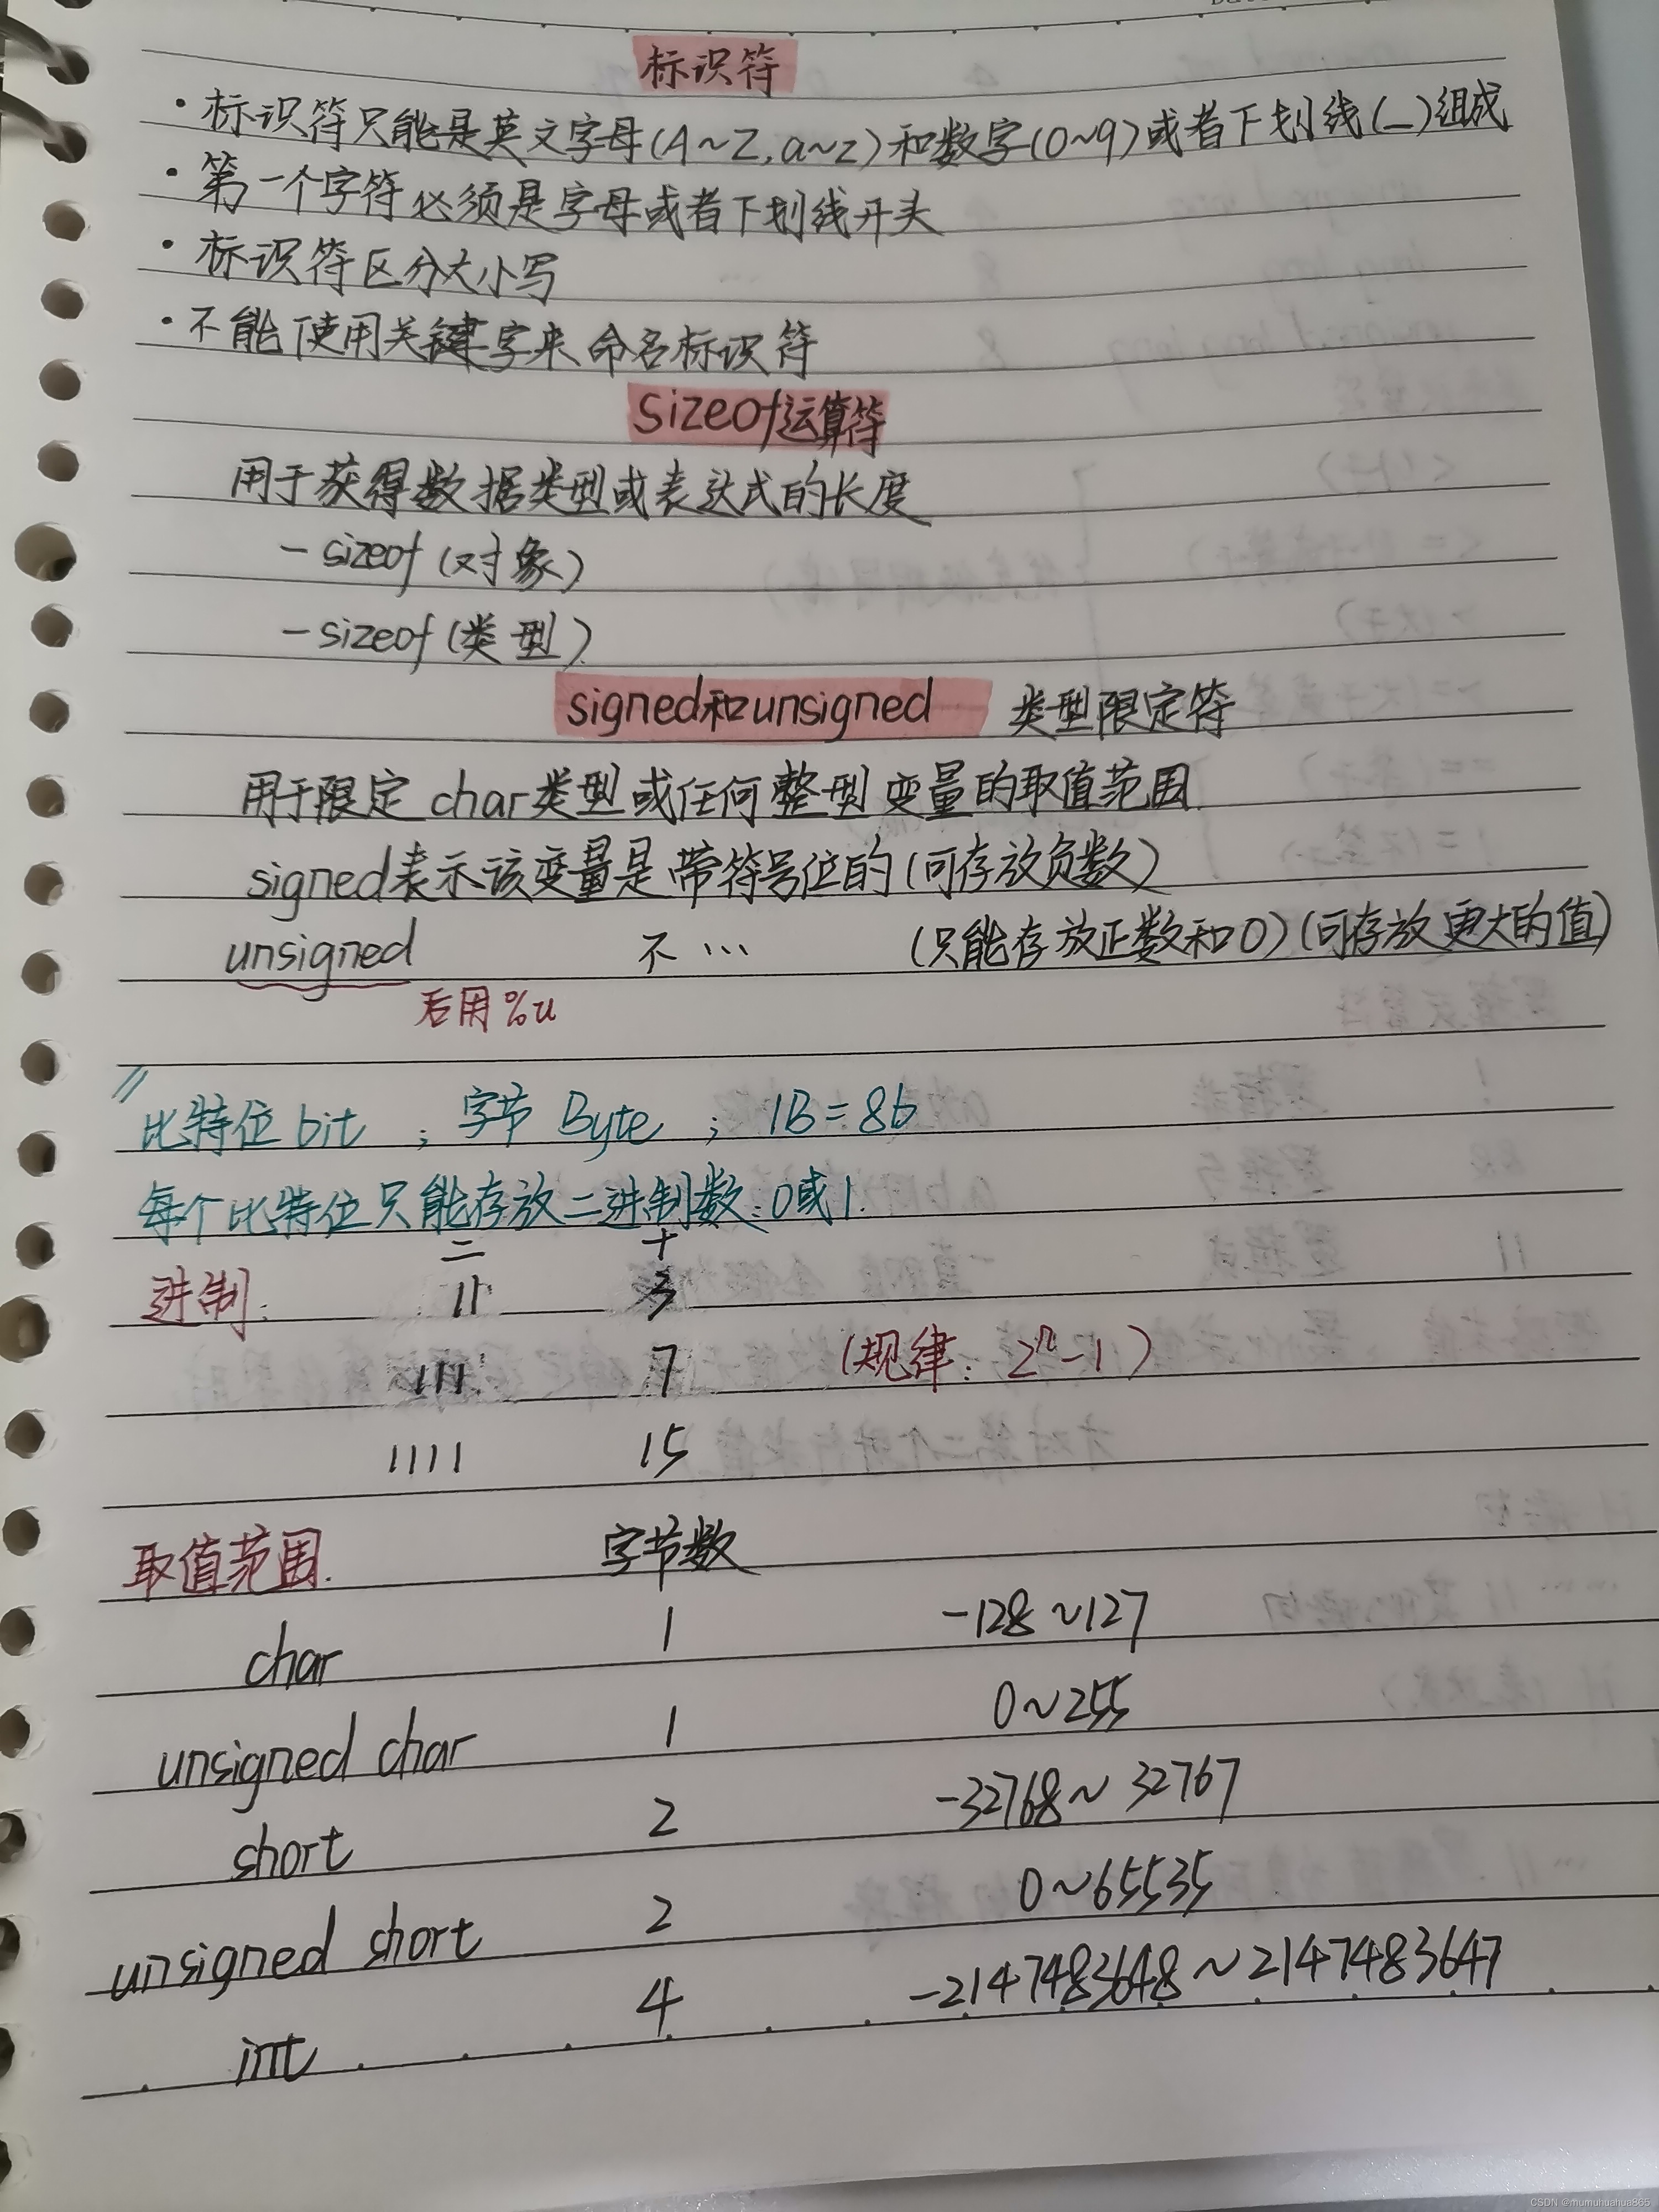 标识符
·标识符只能是英文字母(A~Z,a~z)和数字(0~9)或者下划线(_)组成
·第一个字符必须是字母或者下划线开头
·标识符区分大小写
·不能使用关键字来命名标识符
sizeof运算符
用于获得数据类型或表达式的长度
-sizeof(对象)
-sizeof(类型)
signed和unsigned 类型限定符
用于限定char类型或任何整型变量的取值范围
signed表示该变量是带符号位的(可存放负数)
unsigned 不… (只能存放正数和0)(可存放更大的值)
后用%u
//
比特位bit ; 字节Byte ; 1B=8b
每个比特位只能存放二进制数:0或1.
二 十
进制: 11 3
111 7 (规律:2ⁿ-1)
1111 15
取值范围. 字节数
char 1 -128~127
unsigned char 1 0~255
short 2 -32768~32767
unsigned short 2 0~65535
int 4 -2147483648~2147483647
CSDN @mumuhuahua865